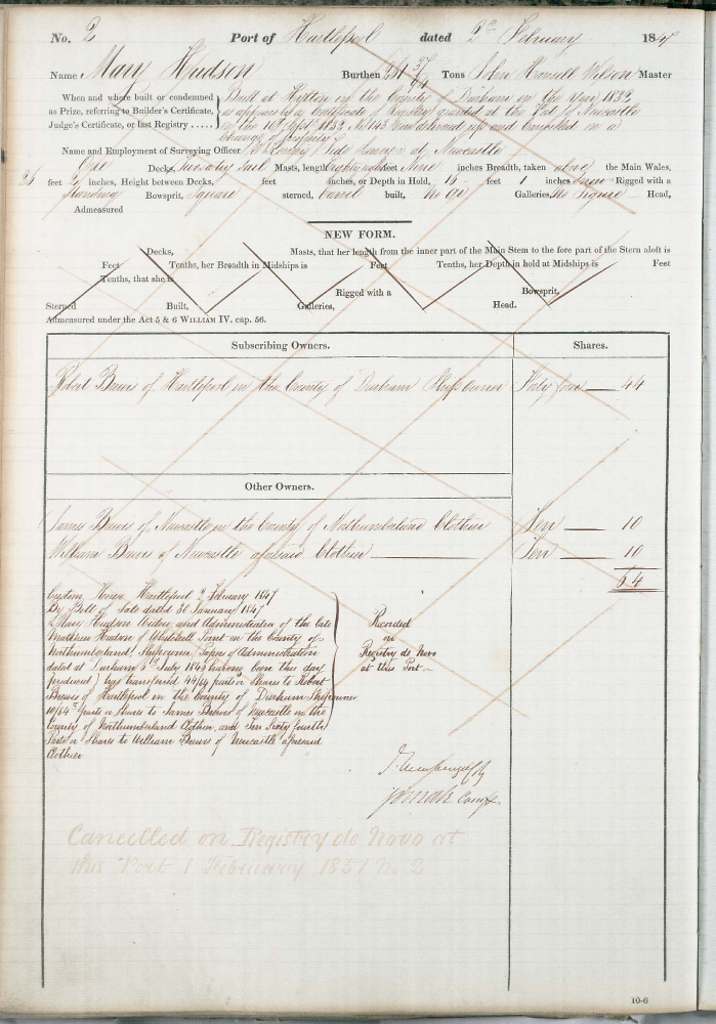 No. 2 Port of Hartlepool dated 2nd February 1847
Name Mary Hudson Burthen 261 37/94 Tons John Worvell Wilson Master
When and where built or condemned
as Prize, referring to Builder's Certificate,
Judge's Certificate, or last Registry . . . . .
Built at Hylton in the County of Durham in the year 1832,
as appears by a Certificate of Registry granted at the Port of Newcastle
in the 18th Sept 1832, No 143 now delivered up and Cancelled on a
change of property
Name and Employment of Surveying Officer Surveyor at Newcastle
One Decks, Two Masts, length eighty feet Nine inches Breadth, taken above the Main Wales,
26 feet 2 inches, Height between Decks, feet inches, or Depth in Hold, 16 feet 1 inches Rigged with a
Standing Bowsprit, Square sterned, Carvel built, No Galleries, No Figure Head,
Admeasured
NEW FORM.
Decks, Masts, that her length from the inner part of the Main Stem to the fore part of the Stern aloft is
Feet Tenths, her Breadth in Midships is Feet Tenths, her Depth in hold at Midships is Feet
Tenths, that she is Rigged with a Bowsprit,
Sterned Built, Galleries, Head.
Admeasured under the Act 5 & 6 WILLIAM IV. cap. 56.
Subscribing Owners. Shares.
Robert Brewis of Hartlepool in the County of Durham Ship Owner Forty four 44
Other Owners.
James Brewis of Newcastle in the County of Northumberland Clothier Ten 10
William Brewis of Newcastle aforesaid Clothier Ten 10
64
Custom House Hartlepool 2 February 1847
By Bill of Sale dated 30 January 1847
Mary Hudson Widow and Administratrix of the late
Matthew Hudson of Point in the County of
Northumberland Shipowner (Copies of Administration
dated at Durham 5th July 1843 having been this day
produced) has transferred 44/64 parts or Shares to Robert
Brewis of Hartlepool in the County of Durham Shipowner
10/64th parts or Shares to James Brewis of Newcastle in the
County of Northumberland Clothier and Ten Sixty fourth
Parts or Shares to William Brewis of Newcastle aforesaid
Clothier
Recorded
on
Registry de Novo
at this Port
Compr
Cancelled on Registry de Novo at
this Port 1 February 1851 No 2
10-6